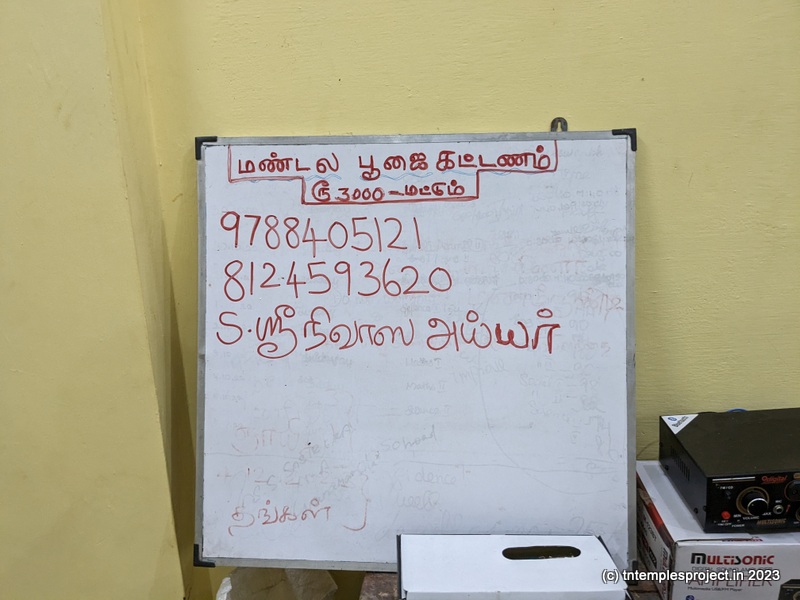 மண்டல பூஜை கட்டணம்
ரூ 3000 - மட்டும்
9788405121
8124593620
S. ஸ்ரீநிவாஸ அய்யர்
தங்கள்
MULTISONIC
AMPLIFIER
(c) tntemplesproject.in 2023